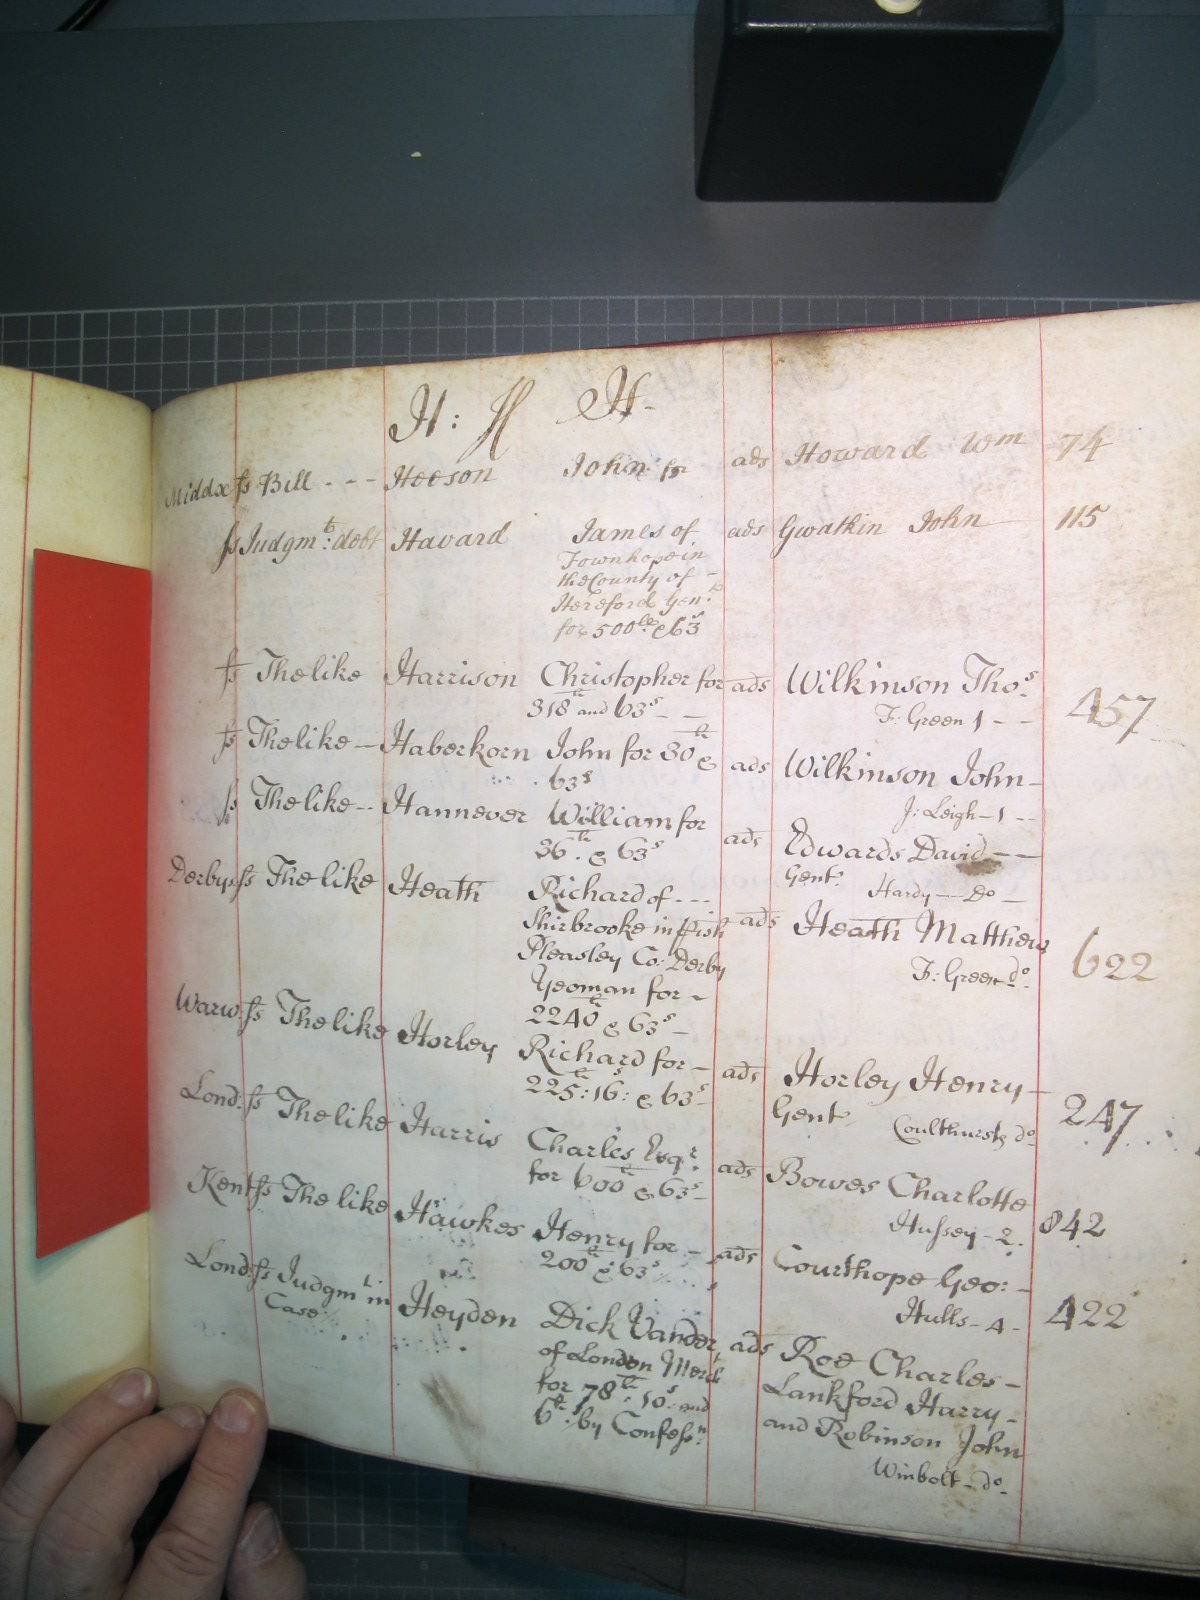 H: H H-
Middx ss Bill - - - Heeson John for ads Howard Wm 74
ss Judgmt: debt Havard James of ads Gwatkin John 115
Townhope in
the County of -
Hereford Gent
for 500lb & 63s
ss The like Harrison Christopher for ads Wilkinson Thos.
318lb and 63s - - F: Green 1 - - 457
ss The like - Haberkorn John for 30lb & ads Wilkinson John -
63s J: Leigh - 1 - -
ss The like - - Hannever William for ads Edwards David - -
36lb. & 63s Gent. Hardy - Do -
Derby ss The like Heath Richard of - - - ads Heath Matthew
Shirbrooke in Pish F: Green do. 622
Pleasley Co: Derby
Yeoman for -
2240lb & 63s -
Warw. ss The like Horley Richard for - ads Horley Henry -
225lb: 16s: & 63s - Gent Coulthurst do. 247
Lond: ss The like Harris Charles Esqr. ads Bowes Charlotte
for 600lb & 63s - Hussey - 2. 842
Kent ss The like Hawkes Henry for - ads Courthope Geo: -
200lb & 63s Hulls - 4 - 422
Lond: ss Judgmt in Heyden Dick Vander ads Roe Charles -
Case of London Mercht Lankford Harry -
for 78lb: 10s: and and Robinson John
6lb by Confessn: Winbolt - do -